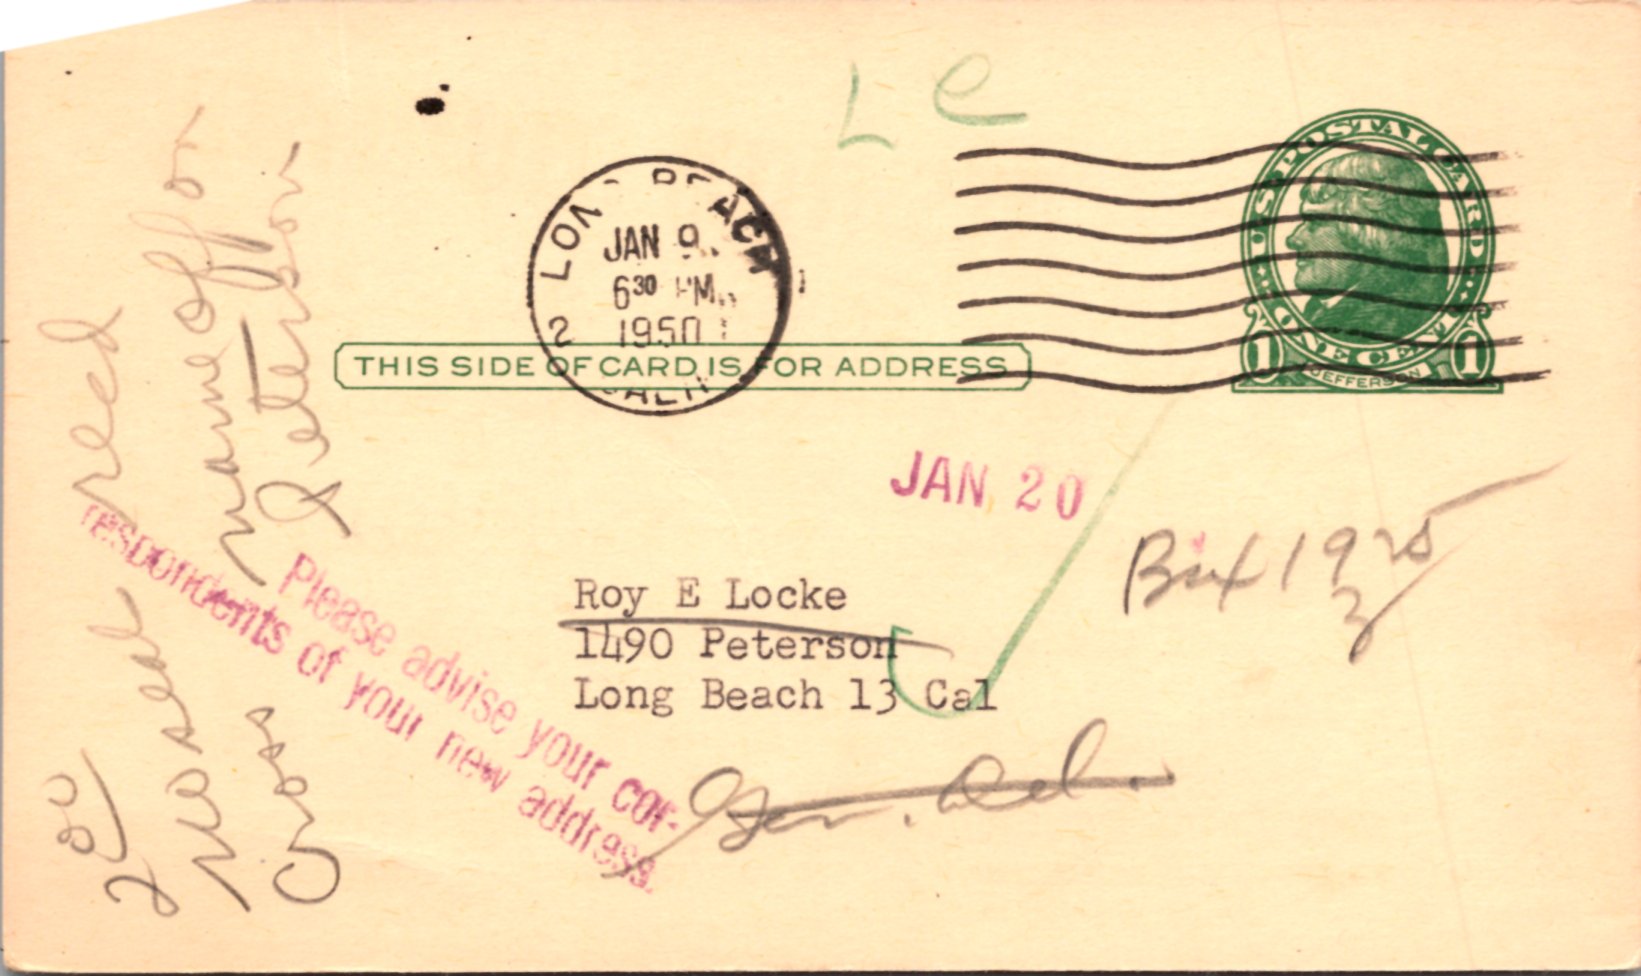 L C
U.S. POSTAL CARD
ONE CENT
1 JEFFERSON 1
LONG BEACH
JAN 9
6 30 PM
2 1950
CALIF
THIS SIDE OF CARD IS FOR ADDRESS
JAN 20
Box 1925
Roy E Locke
1490 Peterson
Long Beach 13 Cal
Gen. Del.
Please advise your cor-
respondents of your new address.
need
name off on
Peterson
near
Cross